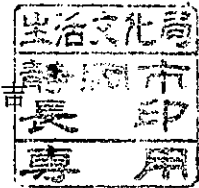 生活文化局
静岡市
長印
専用